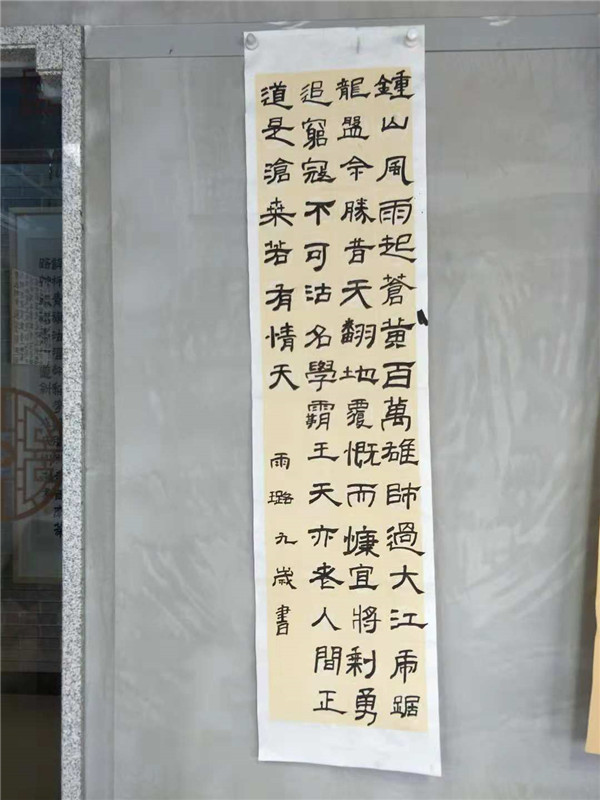 鍾山風雨起蒼黃百萬雄師過大江虎踞
龍盤今勝昔天翻地覆慨而慷宜將剩勇
追窮寇不可沽名學霸王天亦老人間正
道是滄桑若有情天
雨璐九歲書